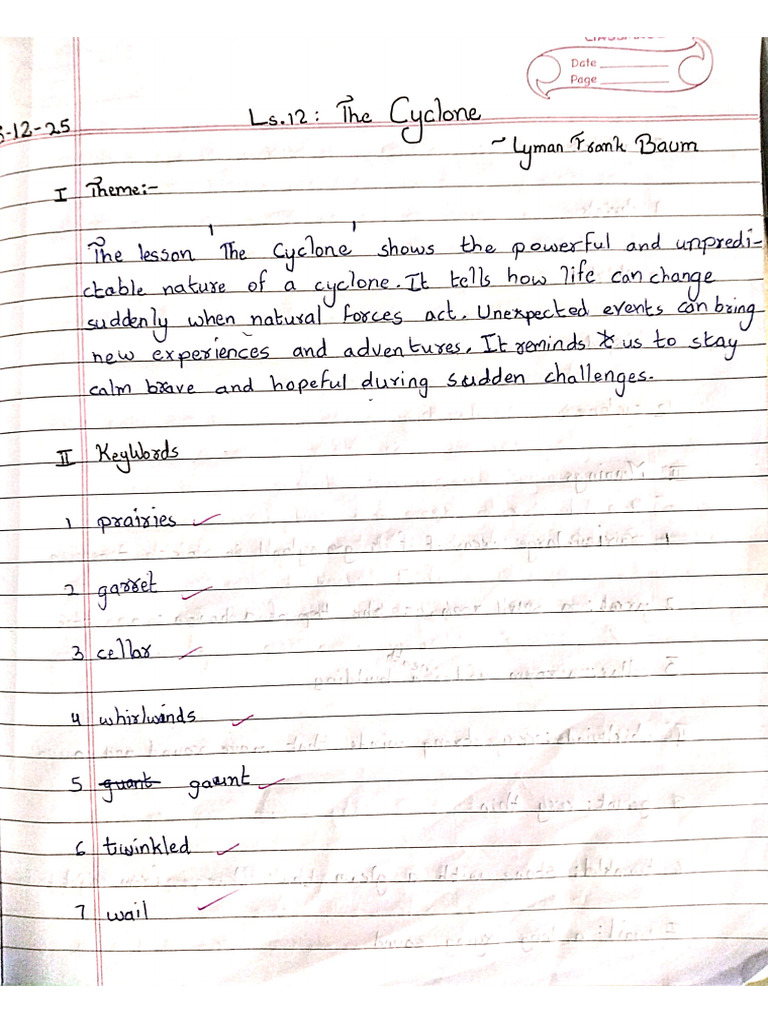 Date
Page
-12-25
Ls.12: The Cyclone
~ Lyman Frank Baum
I Theme:-
The lesson 'The Cyclone' shows the powerful and unpredi-
ctable nature of a cyclone. It tells how life can change
suddenly when natural forces act. Unexpected events can bring
new experiences and adventures. It reminds us to stay
calm brave and hopeful during sudden challenges.
II KeyWords
1 prairies
2 garret
3 cellar
4 whirlwinds
5 guant gaunt
6 twinkled
7 wail